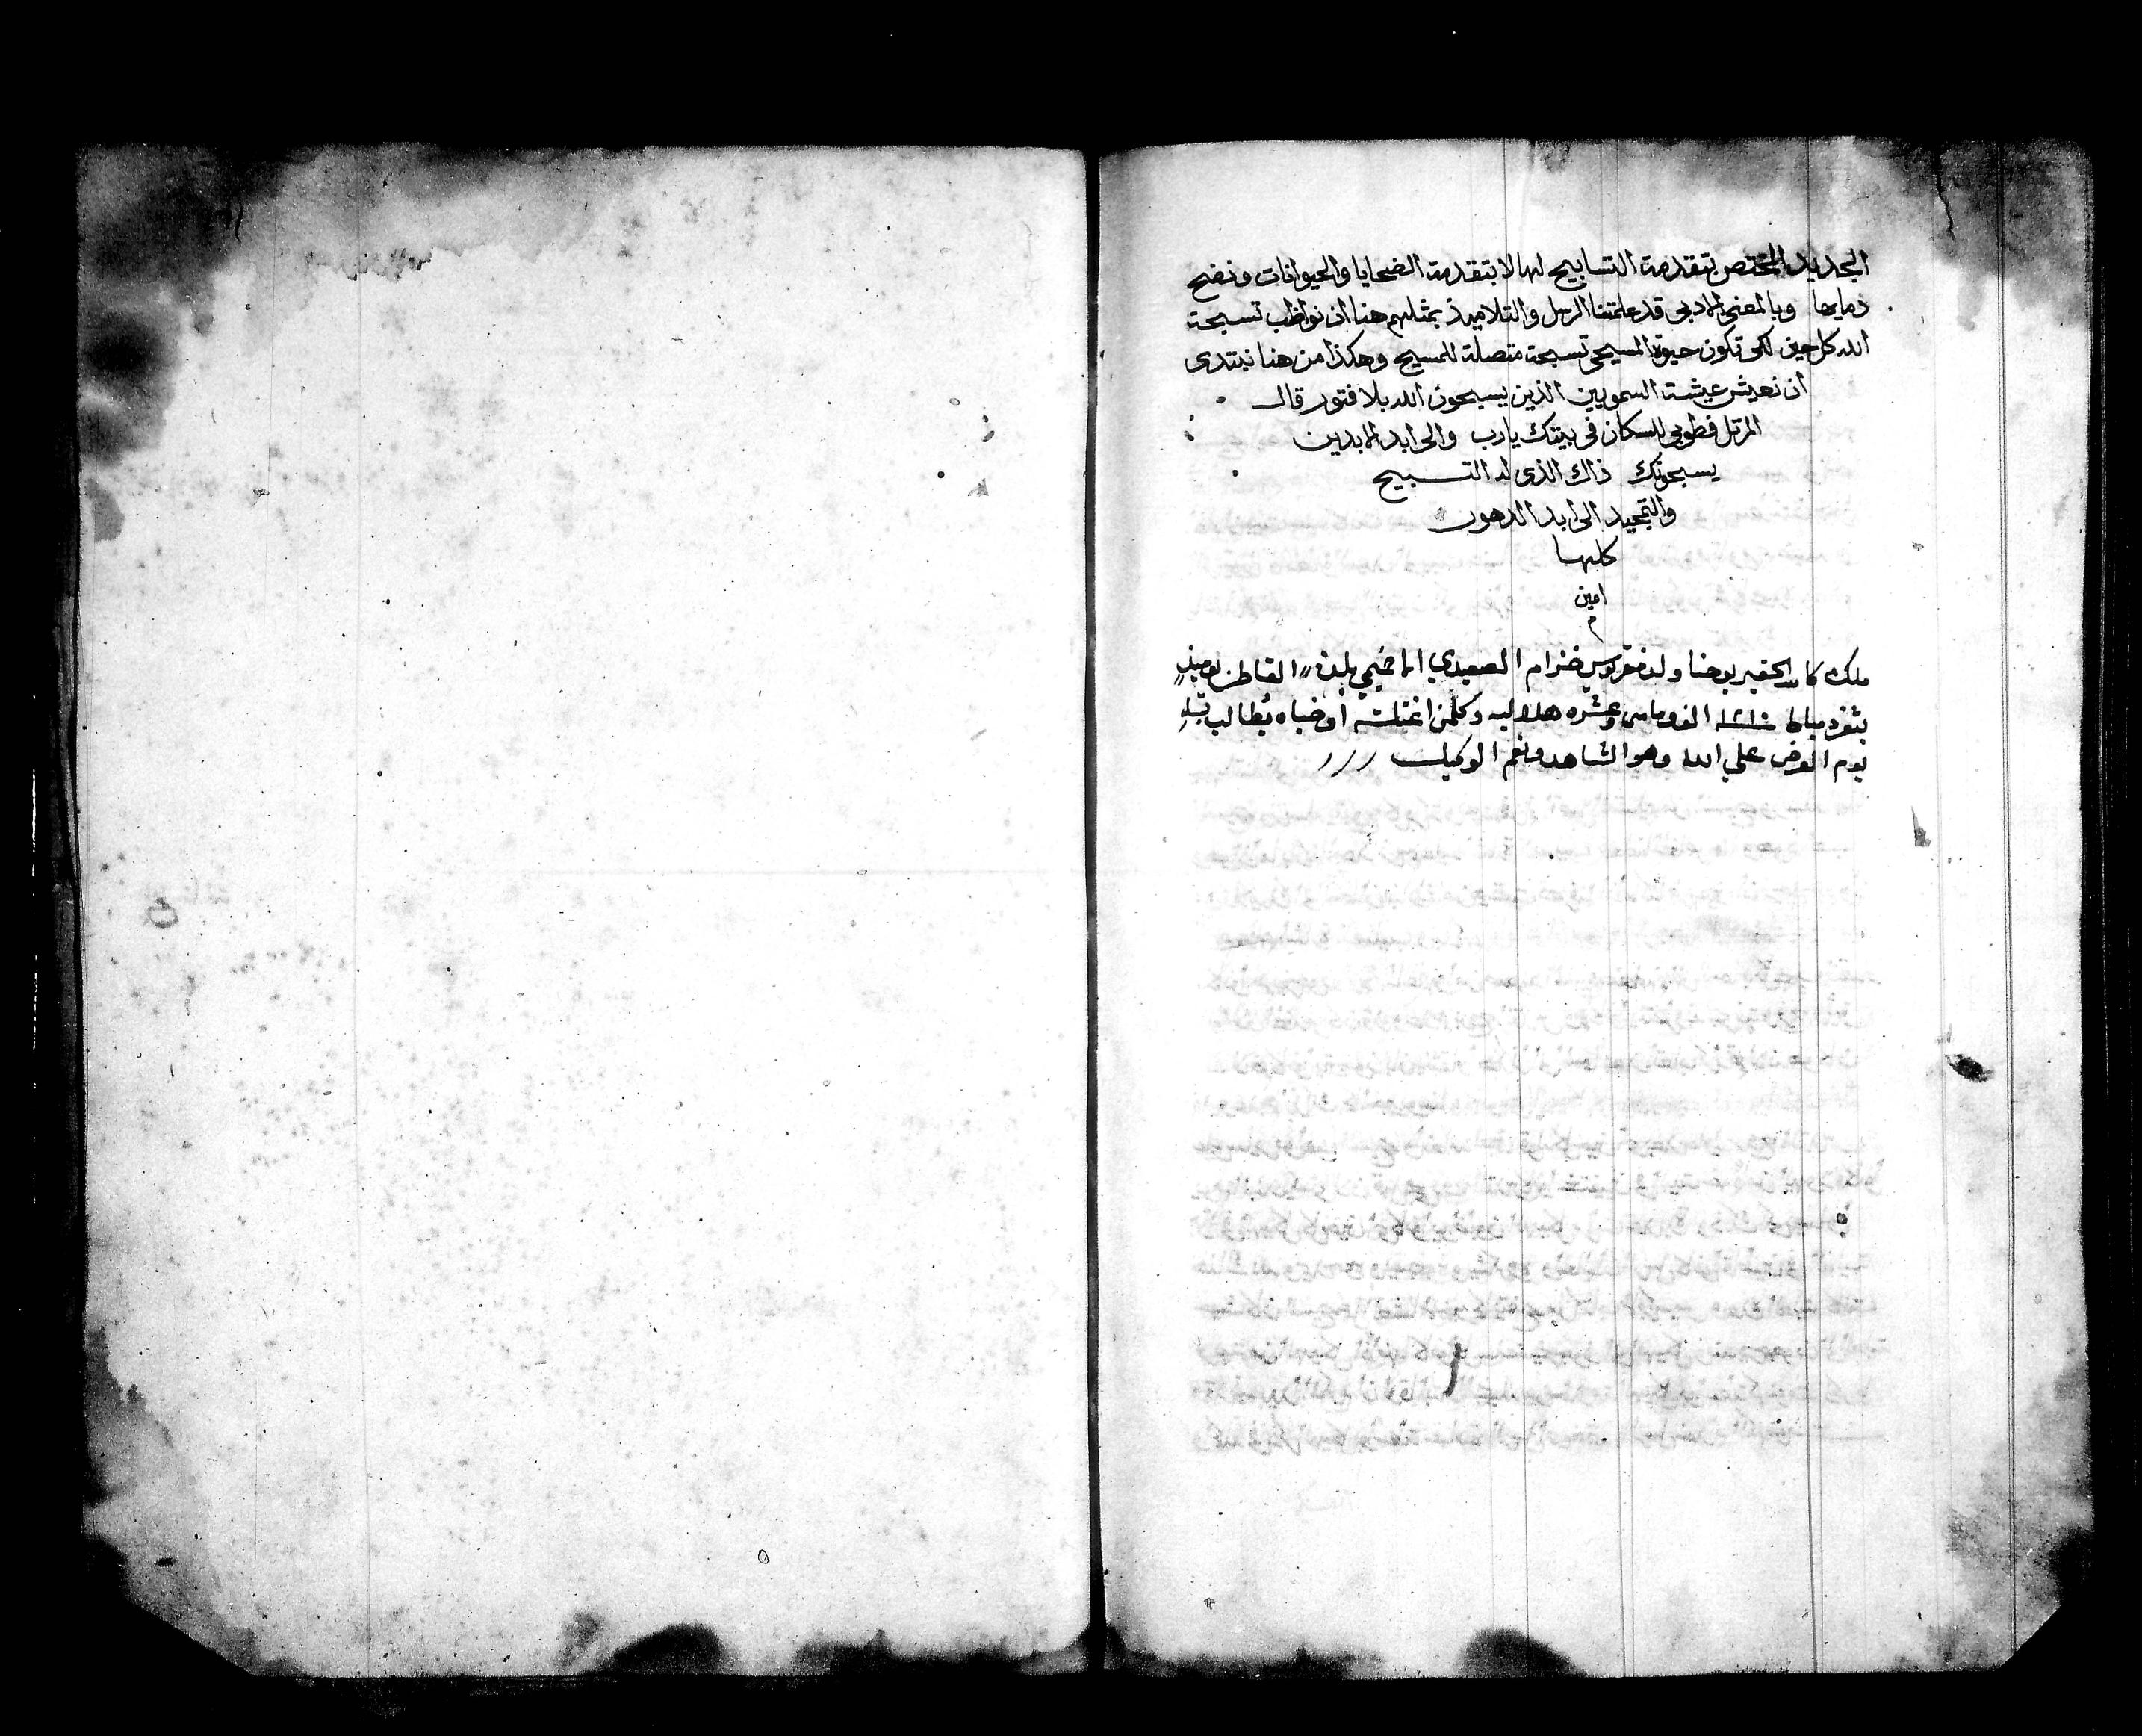 الجديد المختص بتقدمة التسابيح لها لا بتقدمة الضحايا والحيوانات ونضح
دمايها وبالمعنى الادبي قد علمتنا الرسل والتلاميذ بمثلهم هنا ان نواظب تسبحة
الله كل حين لكي تكون حيوة المسيحي تسبحة متصلة للمسيح وهكذا من هنا نبتدى
ان نعيش عيشة السمويين الذين يسبحون الله بلا فتور قال
المرتل فطوبى للسكان في بيتك يارب والى ابد الابدين
يسبحونك ذاك الذى له التسبيح
والتمجيد الى ابد الدهور
كلها
امين
م
ملك الحقير يوحنا ولد الصعيدي القاطن يوميذ
بثغر دمياط الف وماتين وعشره هلاليه وكلمن اوخباه يُطالب
يوم العرض علي الله وهو الشاهد ونعم الوكيل